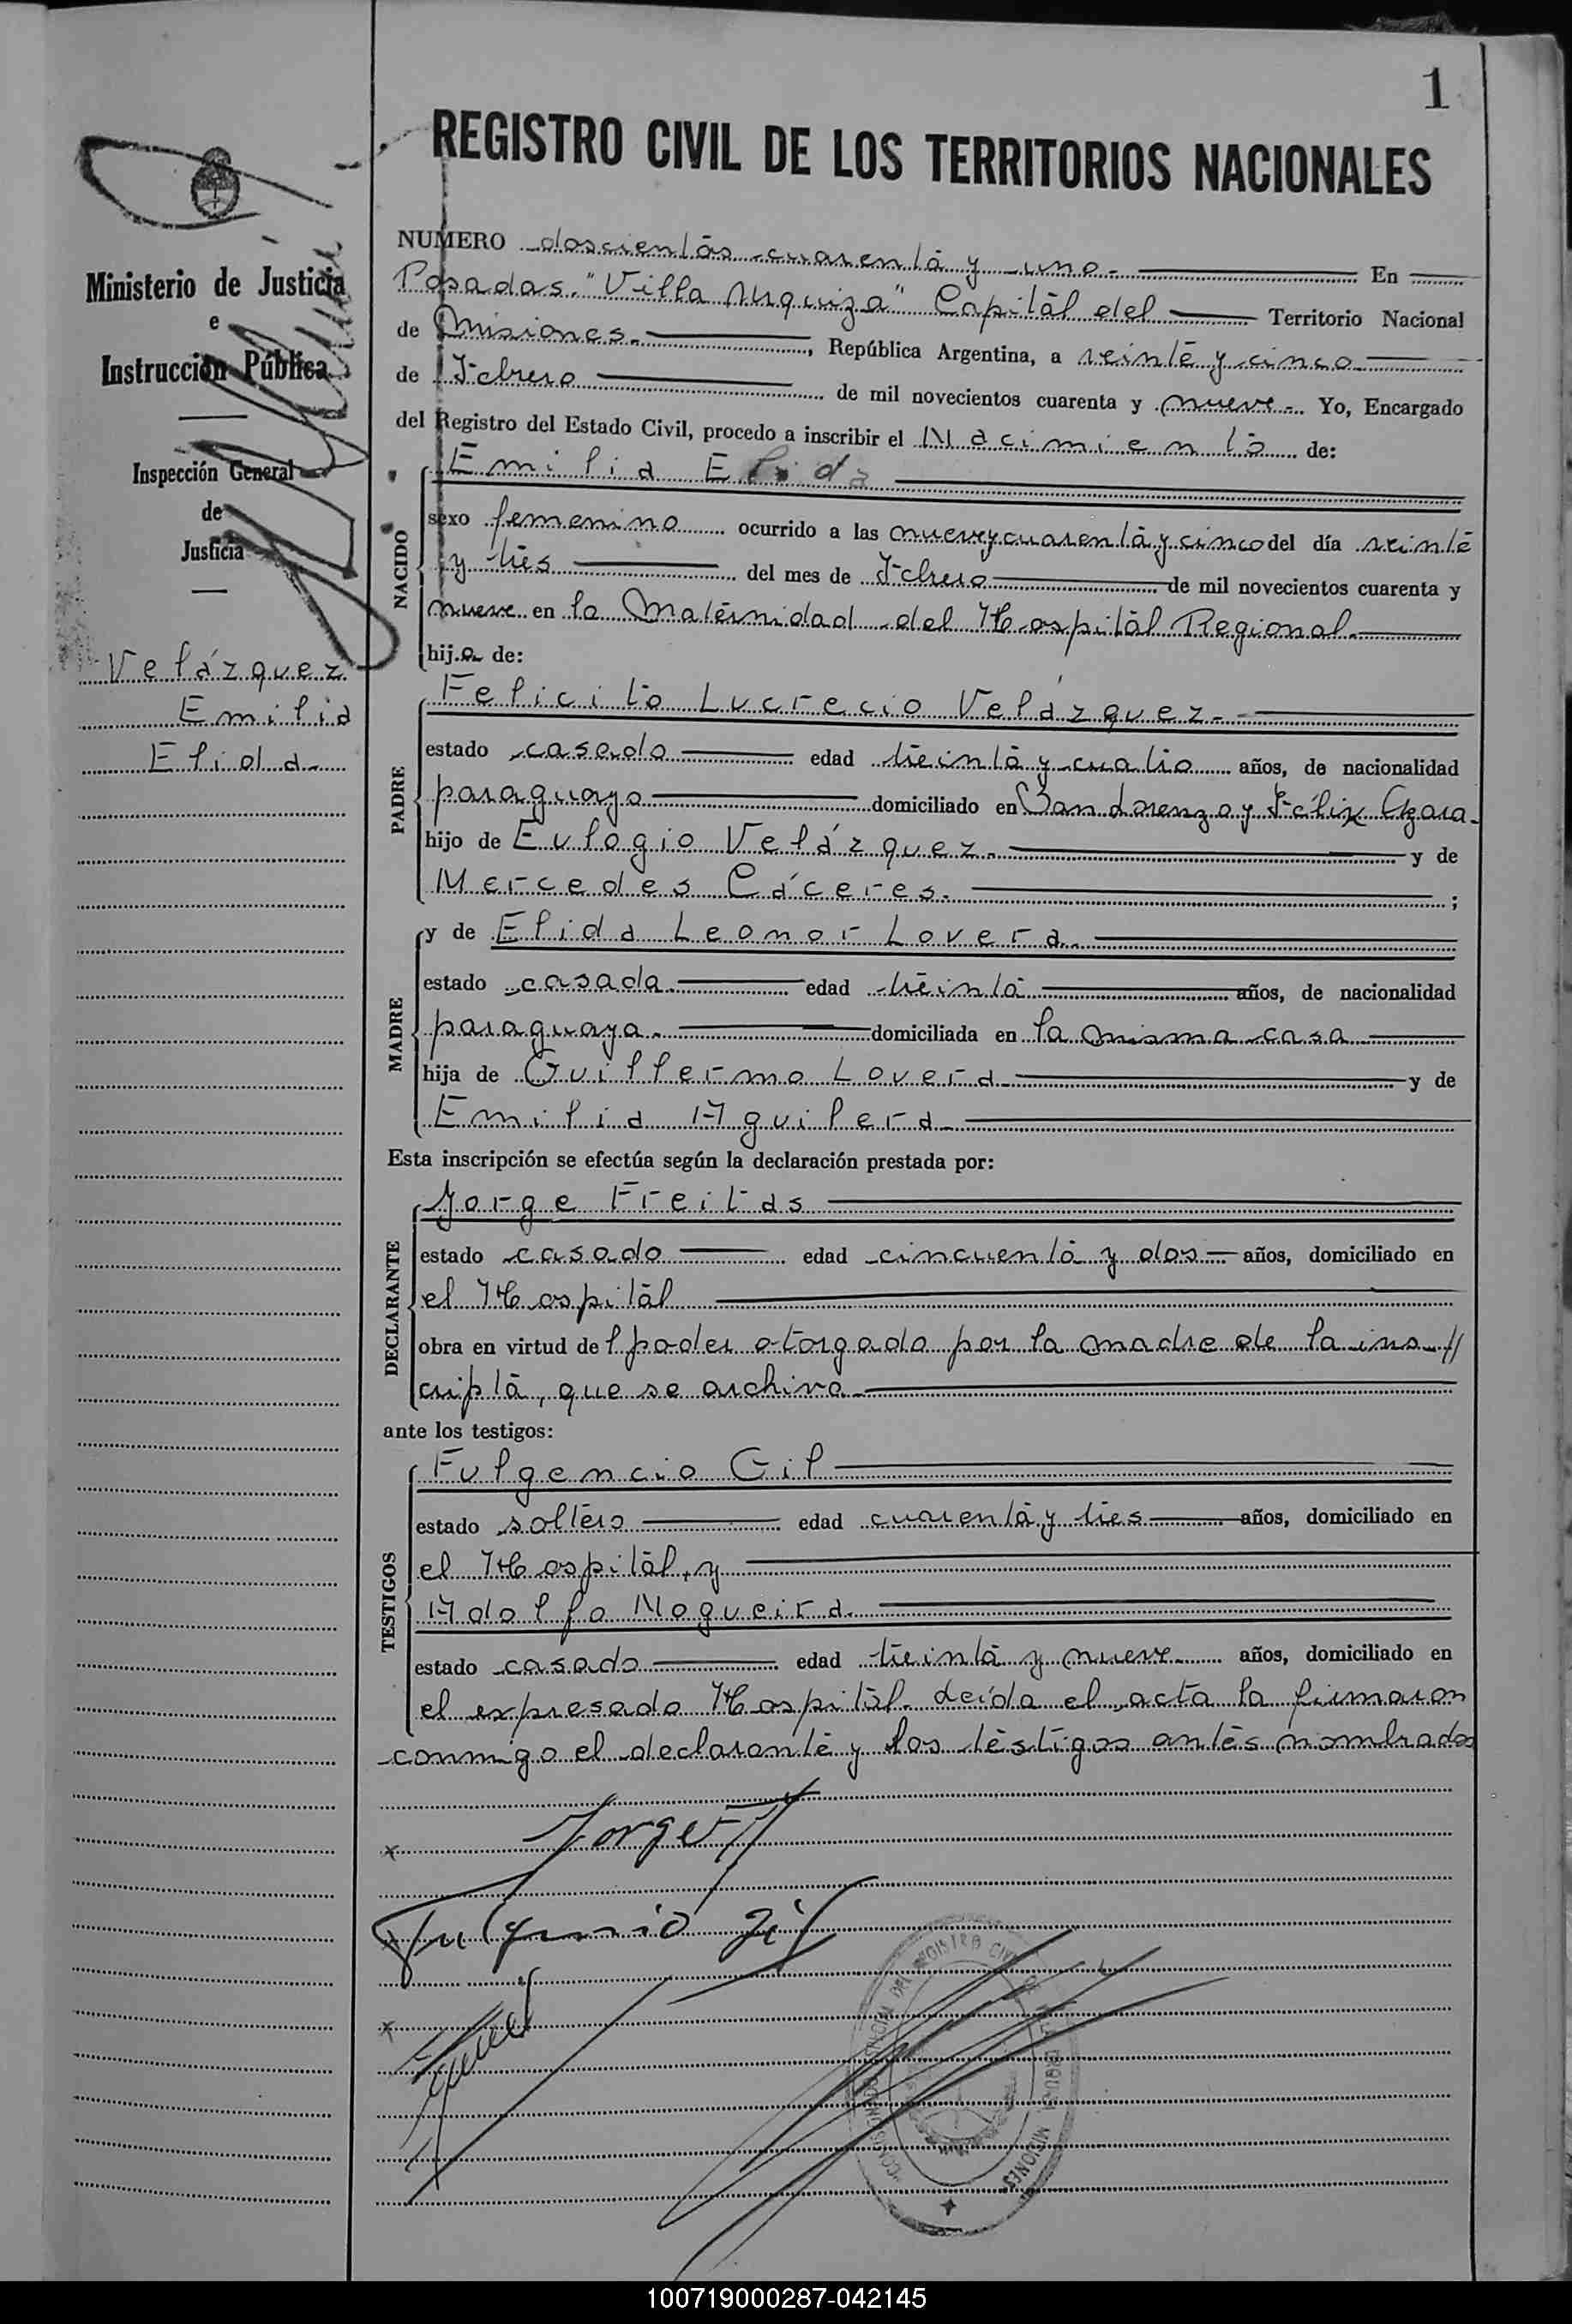 1
REGISTRO CIVIL DE LOS TERRITORIOS NACIONALES
Ministerio de Justicia
e
Instrucción Pública
Inspección General
de
Justicia
Velázquez
Emilia
Elida
NUMERO doscientos cuarenta y uno. En
Posadas. "Villa Urquiza" Capital del Territorio Nacional
de Misiones. , República Argentina, a veinte y cinco
de Febrero de mil novecientos cuarenta y nueve. Yo, Encargado
del Registro del Estado Civil, procedo a inscribir el Nacimiento de:
NACIDO
Emilia Elida
sexo femenino ocurrido a las nueve y cuarenta y cinco del día veinte
y tres del mes de Febrero de mil novecientos cuarenta y
nueve en la Maternidad del Hospital Regional.
hija de:
PADRE
Felicito Lucrecio Velázquez.
estado casado edad treinta y cuatro años, de nacionalidad
paraguayo domiciliado en San Lorenzo y Félix Azara.
hijo de Eulogio Velázquez. y de
Mercedes Cáceres. ;
MADRE
y de Elida Leonor Lovera.
estado casada edad treinta años, de nacionalidad
paraguaya. domiciliada en la misma casa
hija de Guillermo Lovera y de
Emilia Aguilera
Esta inscripción se efectúa según la declaración prestada por:
DECLARANTE
Jorge Freitas
estado casado edad cincuenta y dos años, domiciliado en
el Hospital
obra en virtud del poder otorgado por la madre de la ins//
cripta, que se archiva
ante los testigos:
TESTIGOS
Fulgencio Gil
estado soltero edad cuarenta y tres años, domiciliado en
el Hospital, y
Adolfo Nogueira.
estado casado edad treinta y nueve años, domiciliado en
el expresado Hospital. Leída el acta la firmaron
conmigo el declarante y los testigos antes nombrados
x Jorge
x Fulgencio Gil
x
REGISTRO CIVIL
MISIONES
100719000287-042145